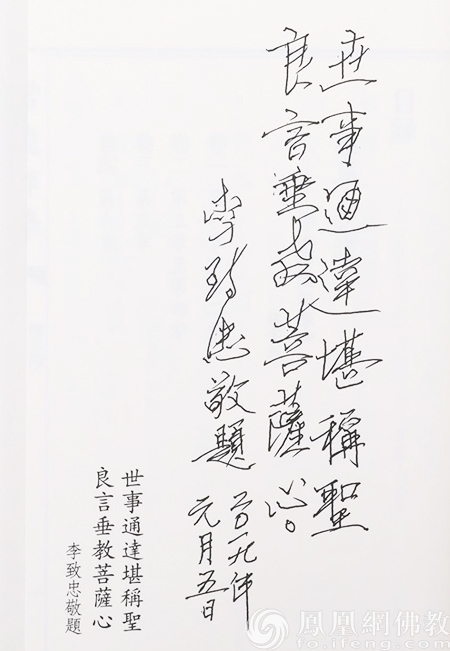 世事通達堪稱聖
良言垂教菩薩心。
李致忠敬題
二〇一九年
元月五日
世事通達堪稱聖
良言垂教菩薩心
李致忠敬題
鳳凰網佛教
fo.ifeng.com